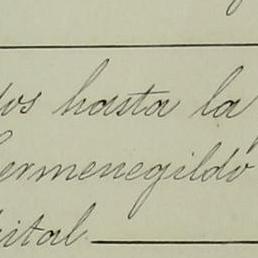 hasta la
ermenegildo
ital